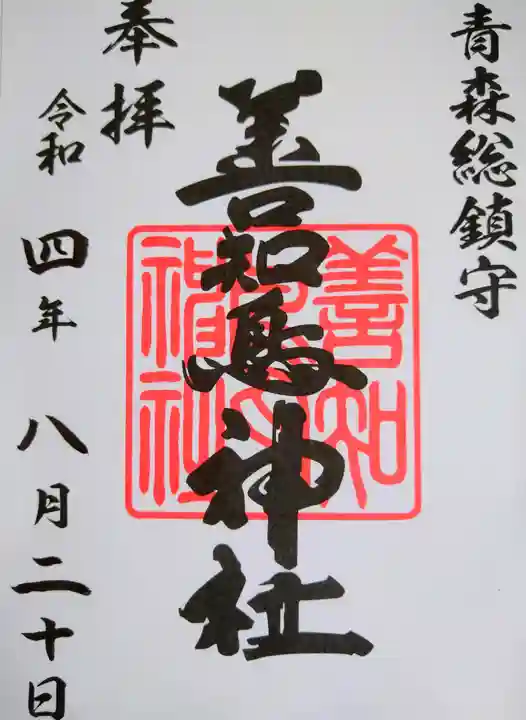 青森総鎮守
善知鳥神社
奉拝
令和四年八月二十日
善知
神社